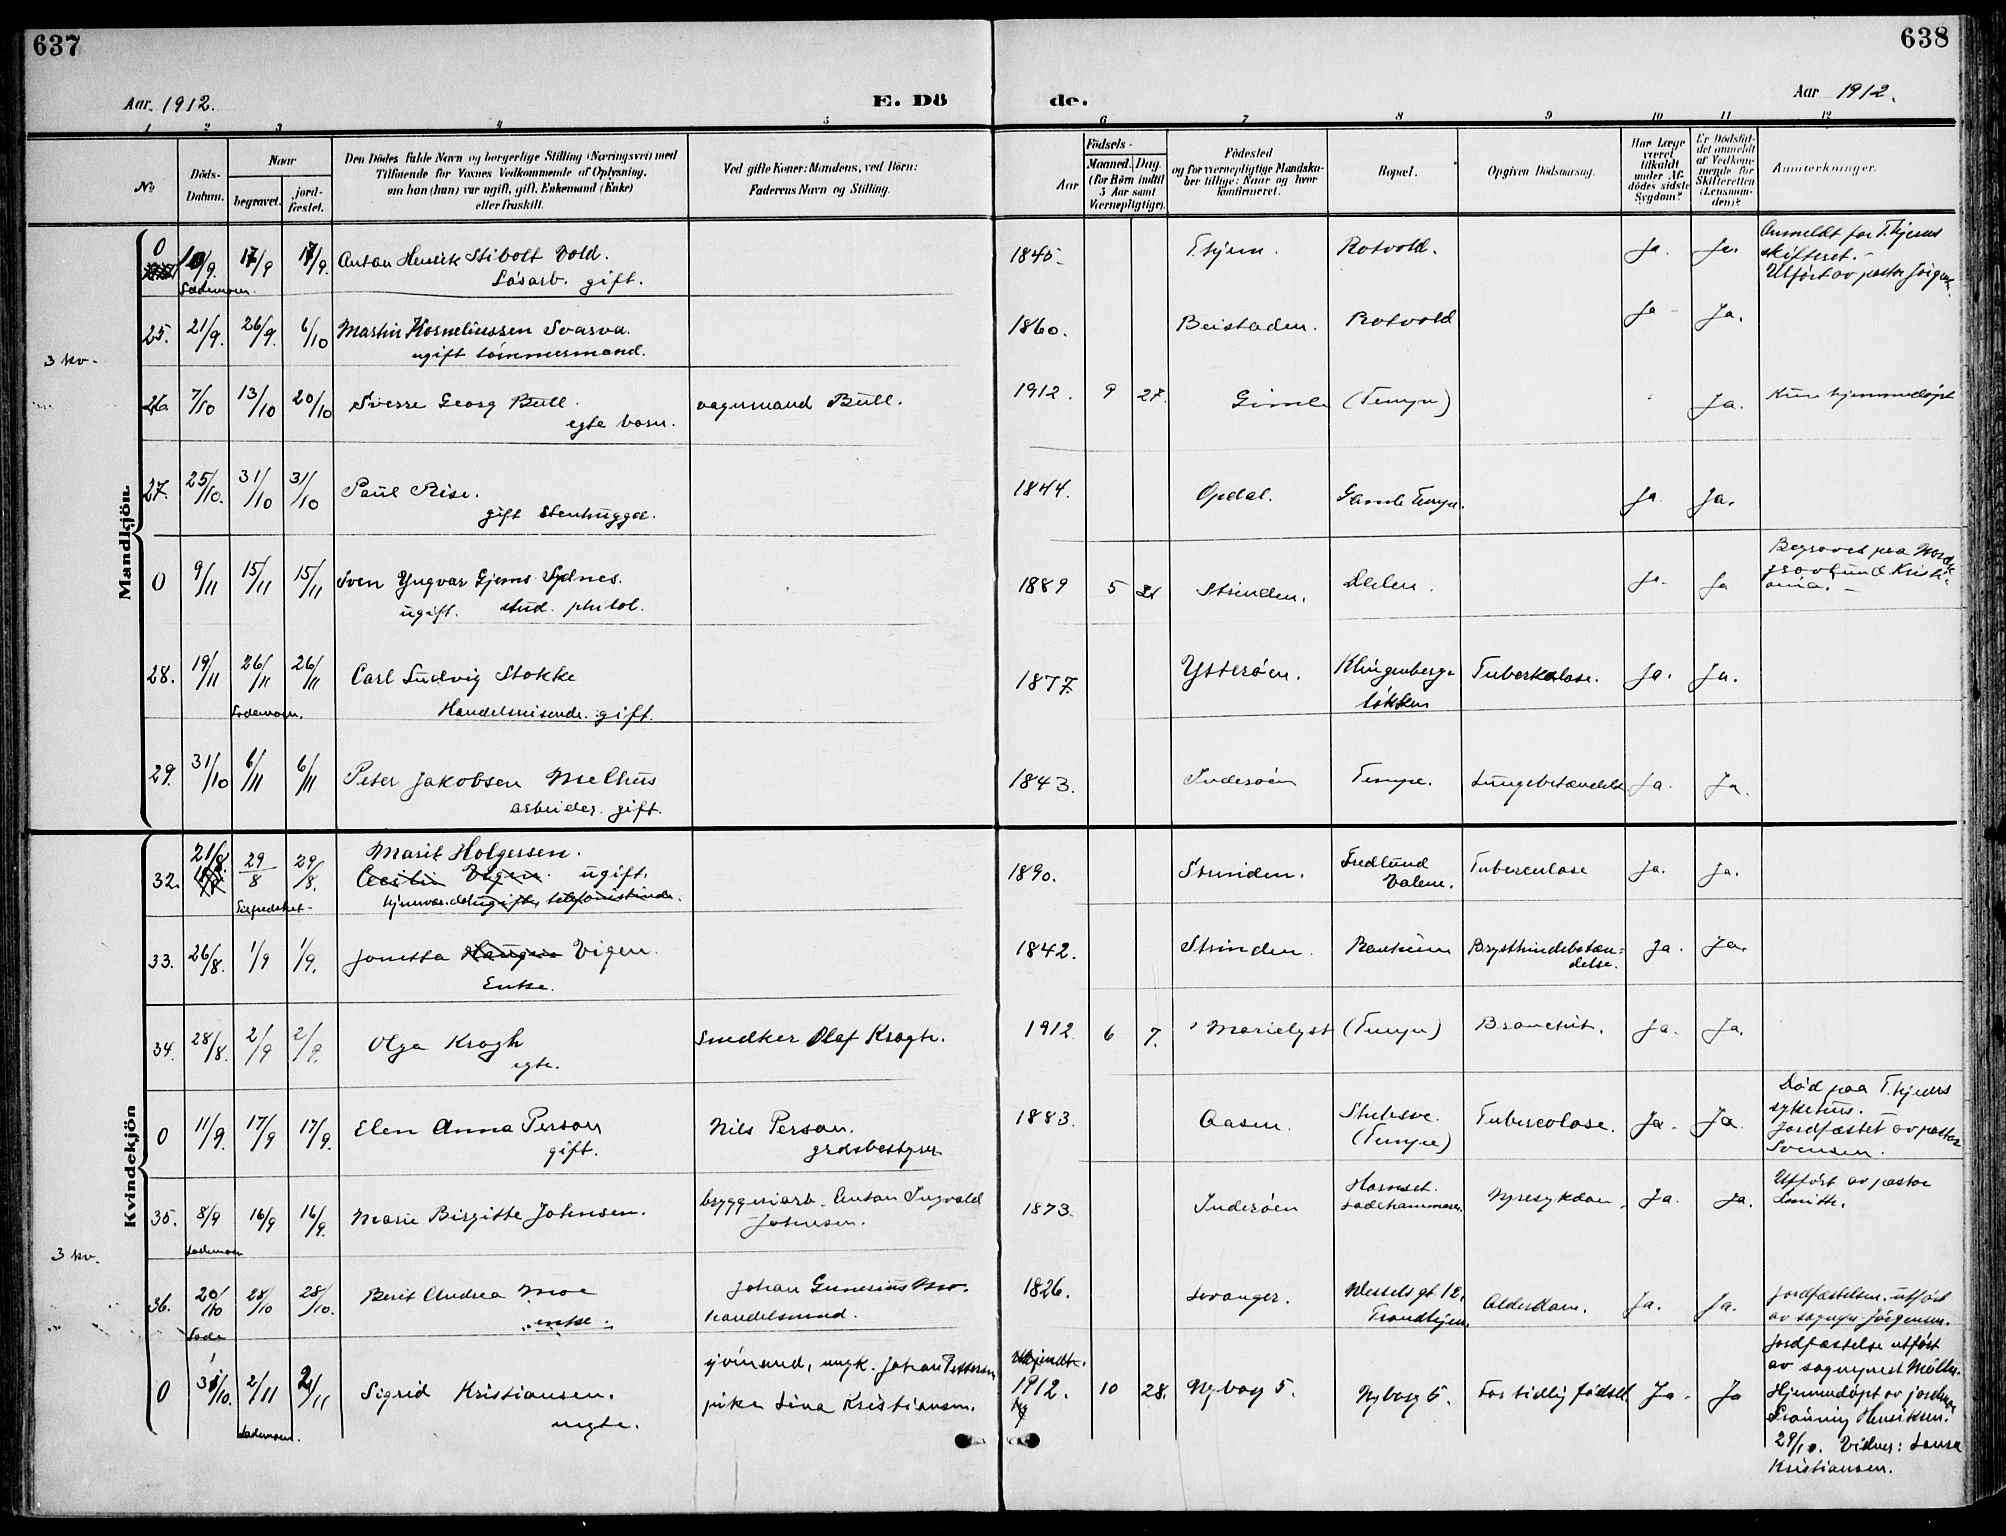 637
638
Aar 1912.
E. Dö
de.
Aar 1912.
1 2 3 4 5 6 7 8 9 10 11 12
No
Döds-
Datum.
Naar
begravet.
jord-
fæstet.
Den Dödes fulde Navn og borgerlige Stilling (Næringsvei) med
Tilföiende for Voxnes Vedkommende af Oplysning,
om han (hun) var ugift, gift, Enkemand (Enke)
eller fraskilt.
Ved gifte Koner: Mandens, ved Börn:
Faderens Navn og Stilling.
Aar
Födsels-
Maaned. Dag.
(for Börn indtil
5 Aar samt
Værnepligtige).
Födested
og for værnepligtige Mandska-
ber tillige: Naar og hvor
konfirmeret.
Bopæl.
Opgiven Dödsaarsag.
Har Læge
været
tilkaldt
under Af-
dödes sidste
Sygdom?
Er Dödsfal-
det anmeldt
af Vedkom-
mende for
Skifteretten
(Lensman-
den)?
Anmærkninger.
Mandkjön.
3 kv.
0 18/9. 17/9 17/9. Anton Henrik Stibolt Vold. 1845 T.hjem. Rotvold. Ja. Ja. Anmeldt for T.hjems
Lademoen. Løsarb. gift. skifteret.-
Utført av pastor Jørgens.
25. 21/9. 26/9. 6/10 Martin Korneliussen Svarva. 1860. Beistaden. Rotvold Ja - Ja.
ugift tømmermand.
26 7/10 13/10 20/10 Sverre Georg Bull. vognmand Bull. 1912. 9 27. Gimle (Tempe) Ja. Kun hjemmedøpt
egte barn.
27. 25/10. 31/10 31/10 Paul Rise. 1844. Opdal. Gamle Tempe. Ja Ja.
gift stenhugger.
0 9/11 15/11 15/11 Sven Yngvar Gjems Sydnes. 1889 5 31 Strinden. Dalen. Ja. Ja Begravet paa Nordre
ugift. stud. philol. gravlund Kristi-
ania. -
28. 19/11 26/11 26/11 Carl Ludvig Stokke 1877. Ytterøen. Klingenberg- Tuberkulose. Ja. Ja.
Lademoen. Handelsreisende. gift. løkken
29. 31/10 6/11 6/11 Peter Jakobsen Melhus 1843. Inderøen Tempe. Lungebetændelse Ja. Ja.
arbeider. gift.
Kvindekjön
3 kv.
32. 21/8. 29/8 29/8. Marit Holgersen. 1890. Strinden. Fredlund Tuberculose Ja. Ja.
Cecilie Vigen. ugift. Valene.
hjemværende ugift, telefonistinde.
33. 26/8. 1/9 1/9. Jonetta Haugen Vigen. 1842. Strinden. Ranheim Brysthindebetæn- Ja. Ja.
Enke. delse.
34. 28/8. 2/9 2/9. Olga Krogh Snedker Olaf Krogh. 1912 6 7. Marielyst (Tempe) Bronchit. Ja. Ja.
egte.
0 11/9. 17/9 17/9. Elen Anna Person Nils Person. 1883. Aasen. (Tempe) Tuberculose. Ja. Ja Død paa T.hjems
gift. sykehus.
Jordfæstet av pastor
Svensen.
35. 8/9 16/9 16/9. Marie Birgitte Johnsen. bryggeriarb. Anton Ingvald 1873. Inderøen Ladehammeren. Nyresykdom. Ja. Ja. Utført av pastor
Lademoen Johnsen. Smitt.
36. 20/10 28/10 28/10. Berit Andrea Moe Johan Gunerius Mo. 1826. Levanger. Wesselsgt 12, Alderdom. Ja. Ja. Jordfæstelsen utført
Lade enke. handelsmand. Trondhjem. av sognepr. Jörgensen.
0 31/10. 2/11 2/11 Sigrid Kristiansen. sjömand, ungk. Johan Pettersen 1912. 10 28. Nyborg 5. Nyborg 5. For tidlig födsel. Ja. Ja Jordfæstelse utført
Lademoen. uegte. pike Lina Kristiansen. av sogneprest Möller.
Hjemmedöpt av jordmor
Henriksen.
29/10. Vidner: Laura
Kristiansen.